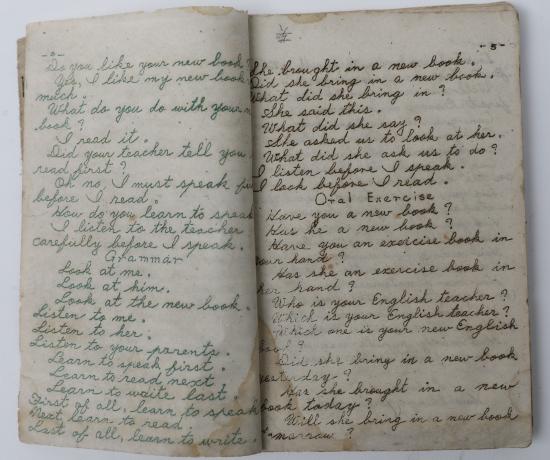 Do you like your new book?
Yes, I like my new book
much.
What do you do with your
book?
I read it.
Did your teacher tell you
read first?
Oh no, I must speak
before I read.
How do you learn to speak
I listen to the teacher
carefully before I speak.
Grammar
Look at me.
Look at him.
Look at the new book.
Listen to me.
Listen to her.
Listen to your parents.
Learn to speak first.
Learn to read next.
Learn to write last.
First of all, learn to speak
Next learn to read.
Last of all, learn to write.
-5-
She brought in a new book.
Did she bring in a new book.
What did she bring in?
She said this.
What did she say?
She asked us to look at her.
What did she ask us to do?
I listen before I speak.
I look before I read.
Oral Exercise
Have you a new book?
Has he a new book?
Have you an exercise book in
your hand?
Has she an exercise book in
her hand?
Who is your English teacher?
Which is your English teacher?
Which one is your new English
book?
Did she bring in a new book
yesterday?
Has she brought in a new
book today?
Will she bring in a new book
tomorrow?